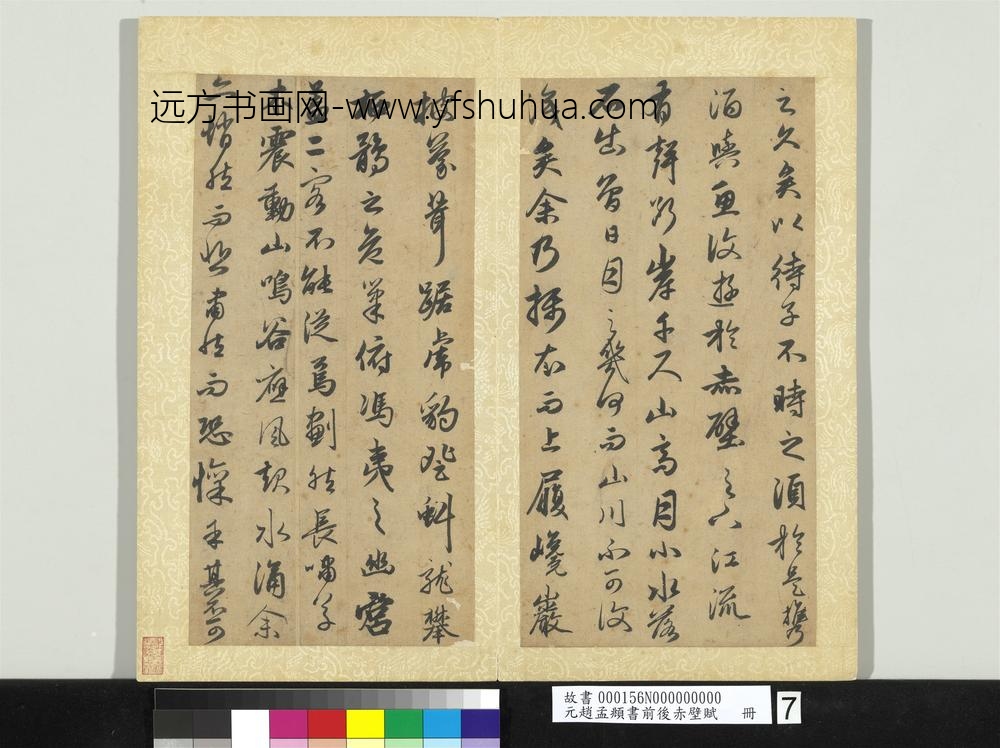 之久矣以待子不時之須於是攜
酒與魚復遊於赤壁之下江流
有聲斷岸千尺山高月小水落
石出曾日月之幾何而山川不可復
識矣余乃攝衣而上履巉巖
披蒙茸踞虎豹登虯龍攀
栖鶻之危巢俯馮夷之幽宮
蓋二客不能從焉劃然長嘯草
木震動山鳴谷應風起水涌余
亦悄然而悲肅然而恐懍乎其不可
远方书画网-www.yfshuhua.com
故書 000156N000000000
元趙孟頫書前後赤壁賦 冊
7